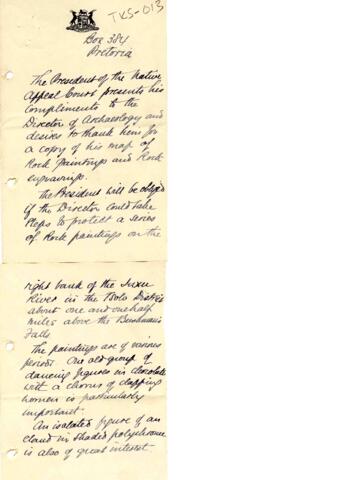 TKS-013
Box 384
Pretoria
The President of the Native
Appeal Court presents his
compliments to the
Director of Archaeology and
desires to thank him for
a copy of his map of
Rock Paintings and Rock
engravings.
The President will be obliged
if the Director could take
steps to protect a series
of Rock paintings on the
right bank of the Inxu
River in the Tsolo District
about one and one half
miles above the Bushman's
Falls
The paintings are of various
periods. One old group of
dancing figures in chocolate
with a chorus of clapping
women is particularly
important.
An isolated figure of an
eland in shaded polychrome
is also of great interest.